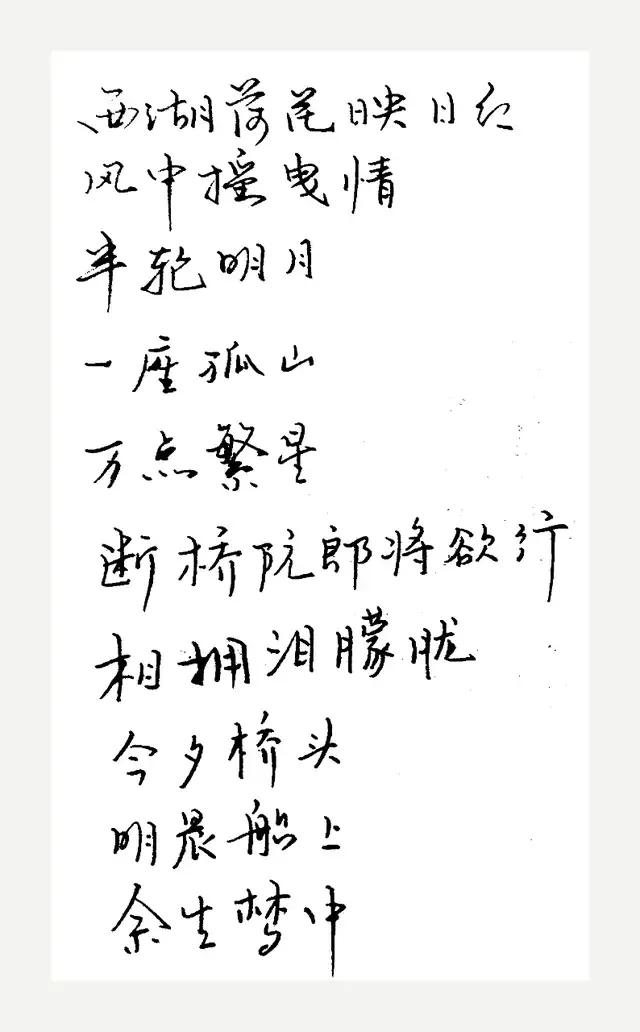 西湖荷花映日红
风中摇曳情
半轮明月
一座孤山
万点繁星
断桥阮郎将欲行
相拥泪朦胧
今夕桥头
明晨船上
余生梦中